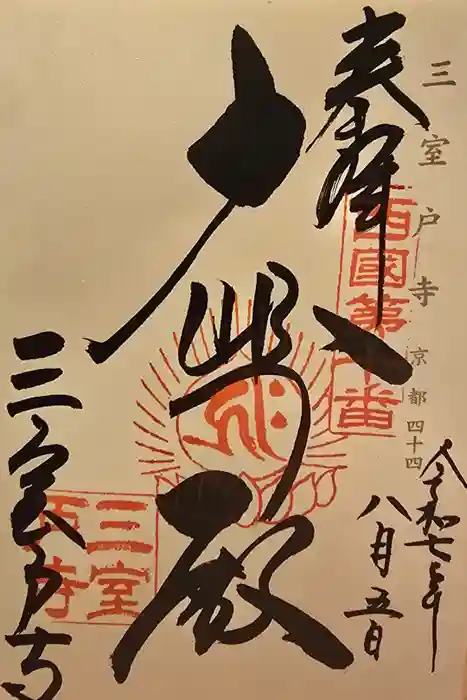 三室戸寺 京都四十四
奉拝
西國第十番
令和七年
八月五日
大悲殿
三室戸寺
三室戸寺